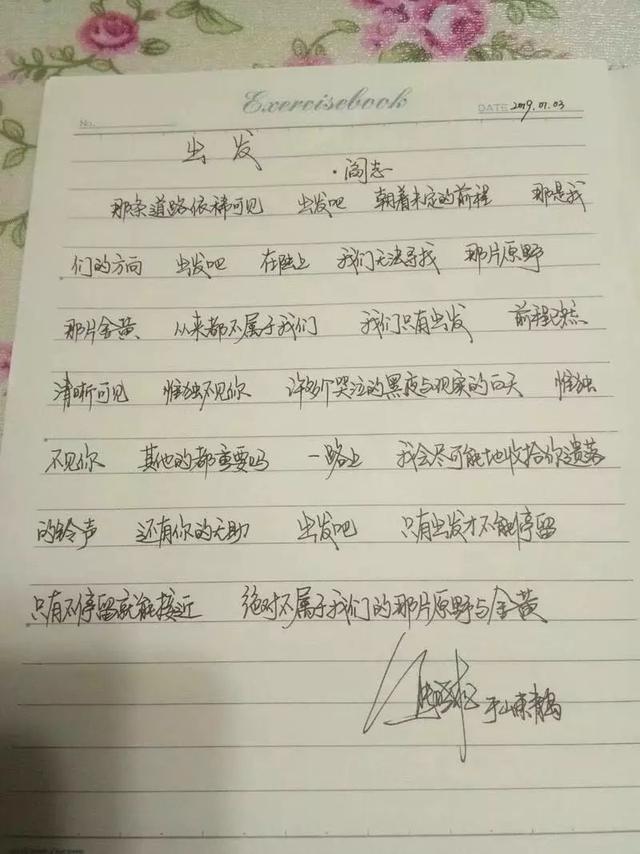 Exercisebook
No.
DATE 2019.01.03
出发
·阎志
那条道路依稀可见 出发吧 朝着未定的前程 那是我
们的方向 出发吧 在陆上 我们无法寻找 那片原野
那片金黄 从来都不属于我们 我们只有出发 前程已然
清晰可见 惟独不见你 许多个哭泣的黑夜与现实的白天 惟独
不见你 其他的都重要吗 一路上 我会尽可能地收拾你遗落
的铃声 还有你的无助 出发吧 只有出发才不能停留
只有不停留就能接近 绝对不属于我们的那片原野与金黄
于山东青岛